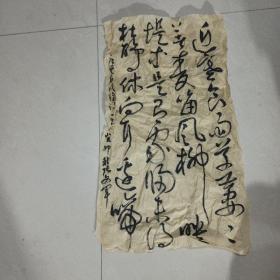 近寒食雨草萋〻
著麦苗風柳映
堤等是有家归未得
杜鹃休向耳边啼
癸卯